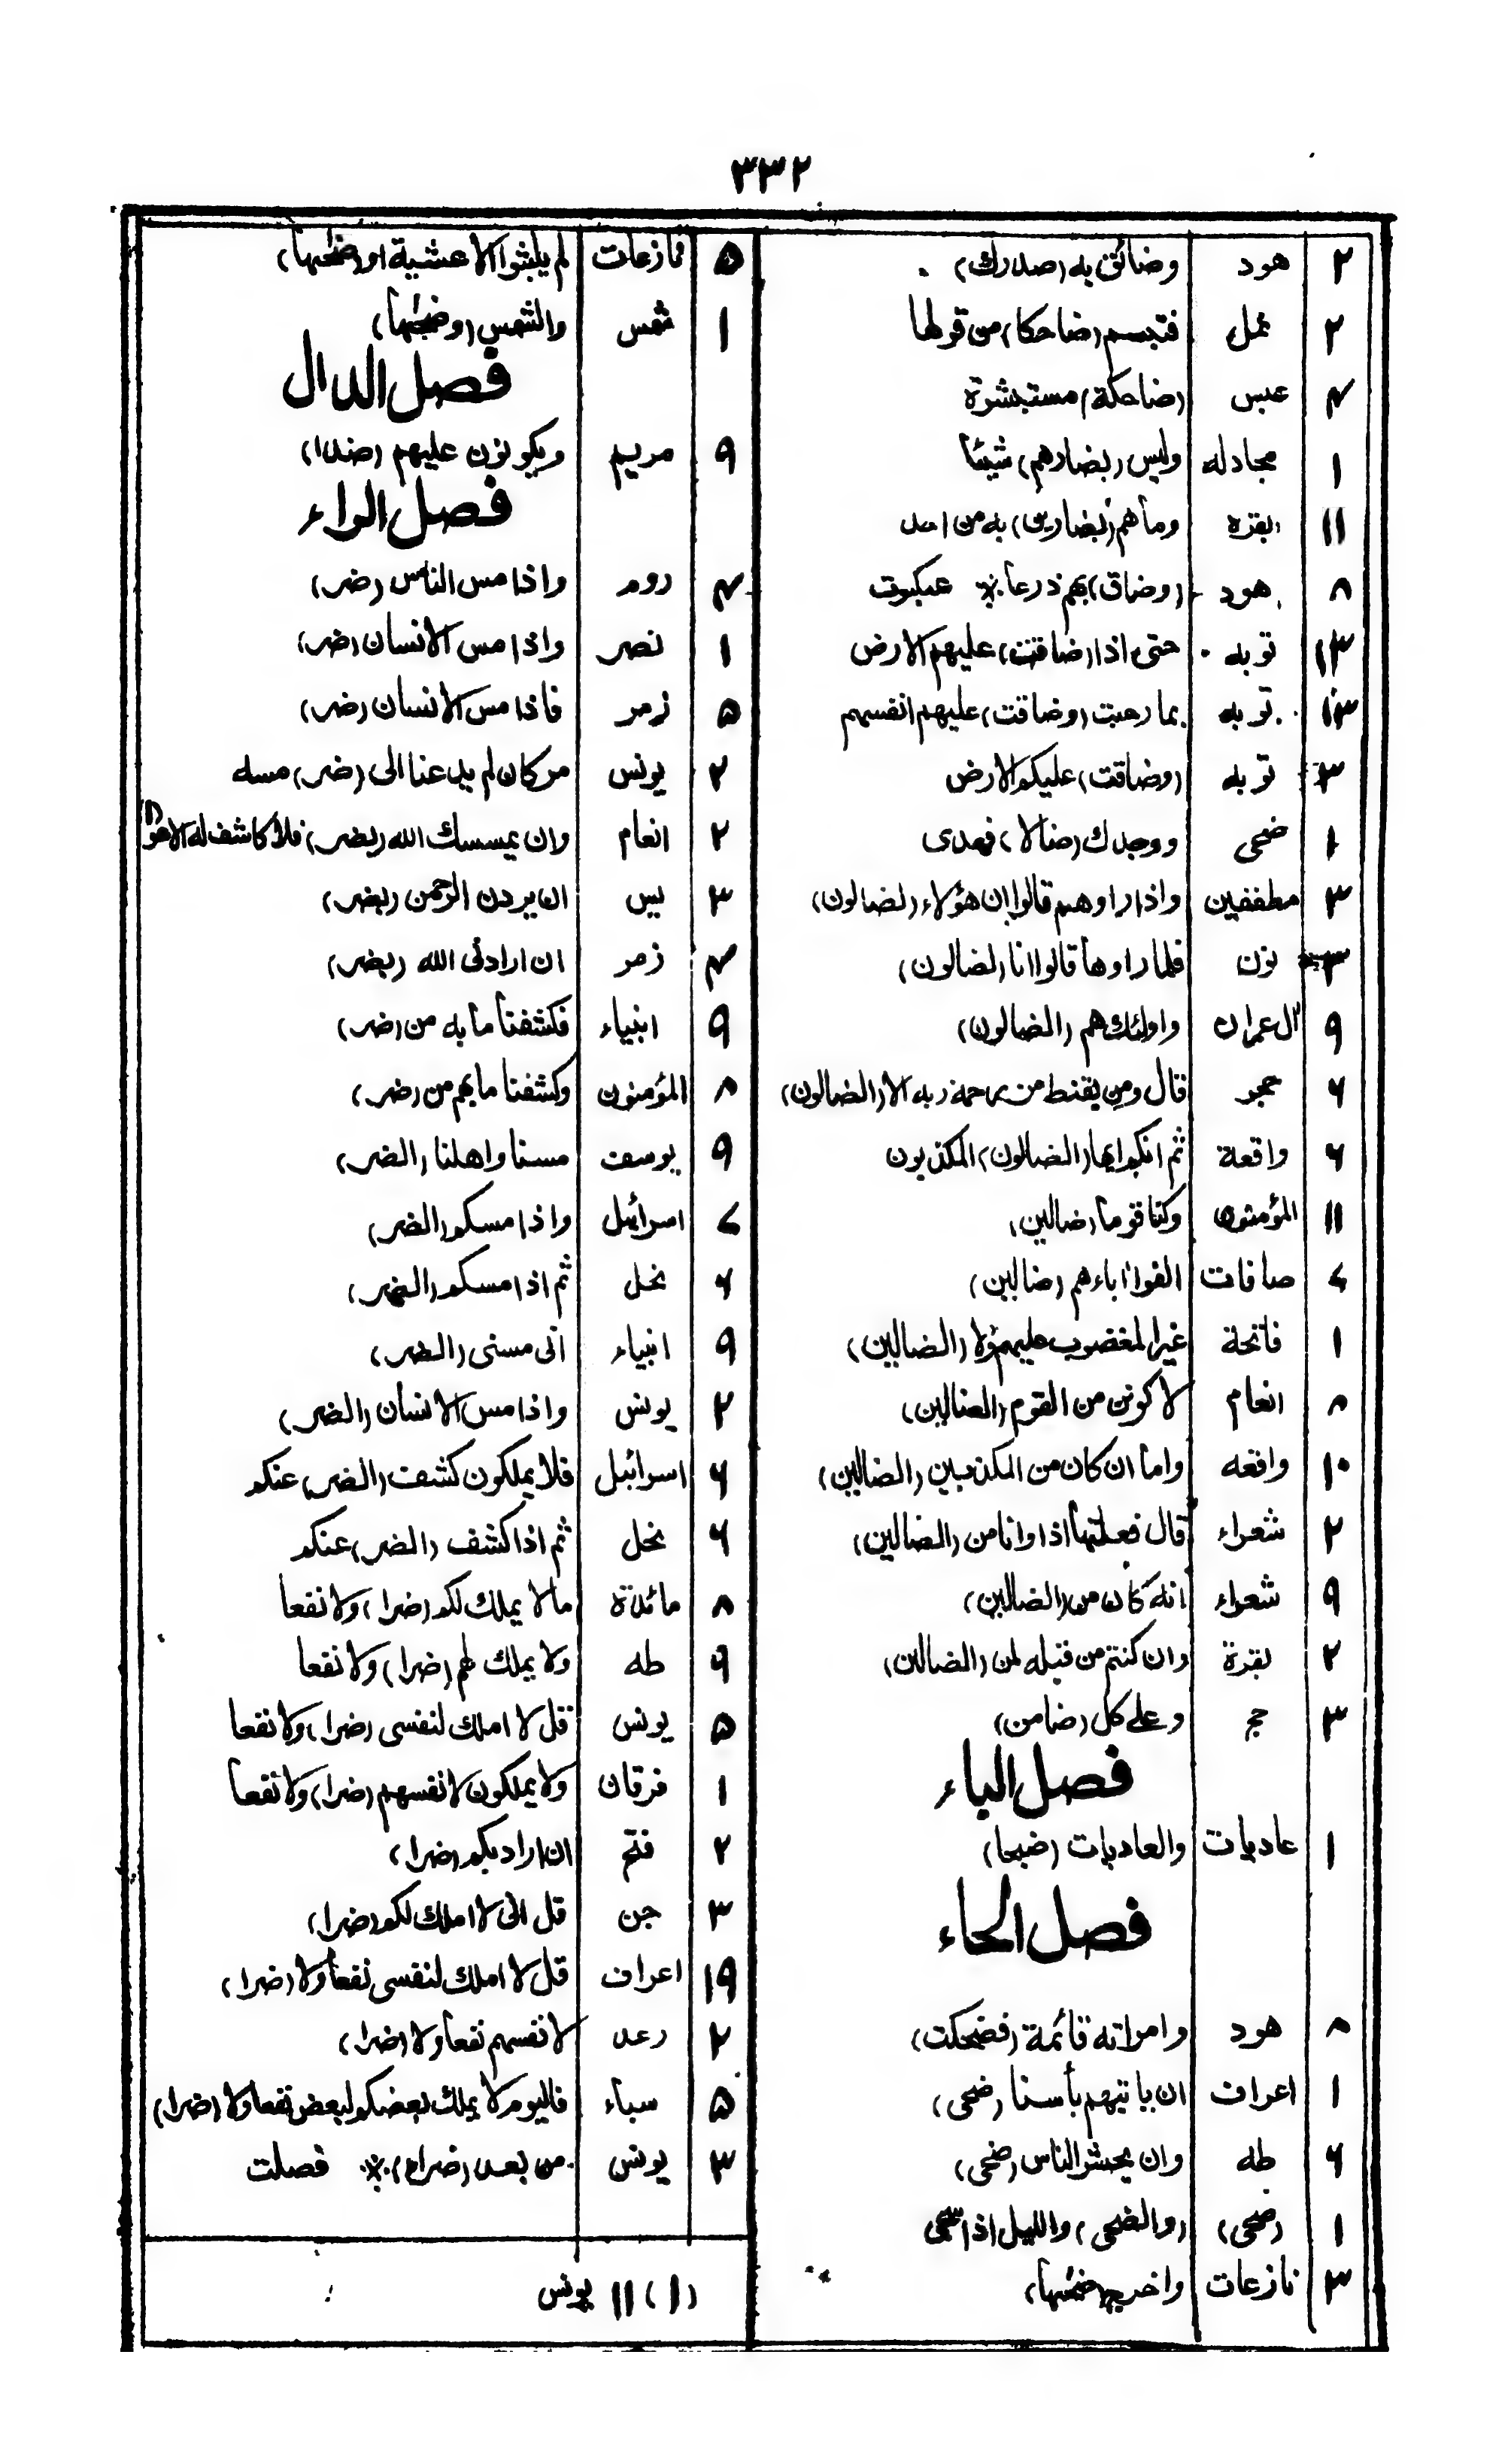 ٣٣٢
٢ هود وضائق به (صدرك)
٢ نمل فتبسم (ضاحكا) من قولها
٤ عبس (ضاحكة) مستبشرة
١ مجادله وليس (بضارهم) شيئا
١١ البقره وما هم (بضارين) به من احد
٨ هود (وضاق) بهم ذرعا ※ عنكبوت
١٣ توبه حتى اذا (ضاقت) عليهم الارض
١٣ توبه بما رحبت (وضاقت) عليهم انفسهم
٣ توبه (وضاقت) عليكم الارض
١ ضحى ووجدك (ضالا) فهدى
٣ مطففين واذا راوهم قالوا ان هؤلاء (لضالون)
٣ نون فلما راوها قالوا انا (لضالون)
٩ آل عمران واولئك هم (الضالون)
٦ حجر قال ومن يقنط من رحمة ربه الا (الضالون)
٦ واقعة ثم انكم ايها (الضالون) المكذبون
١١ المؤمنون وكنا قوما (ضالين)
٢ صافات الفوا آباءهم (ضالين)
١ فاتحة غير المغضوب عليهم ولا (الضالين)
٨ انعام لاكونن من القوم (الضالين)
١٠ واقعه واما ان كان من المكذبين (الضالين)
٢ شعراء قال فعلتها اذا وانا من (الضالين)
٩ شعراء انه كان من (الضالين)
٢ بقرة وان كنتم من قبله لمن (الضالين)
٣ حج وعلى كل (ضامر)
فصل الباء
١ عاديات والعاديات (ضبحا)
فصل الحاء
٨ هود وامراته قائمة (فضحكت)
١ اعراف ان ياتيهم بأسنا (ضحى)
٦ طه وان يحشر الناس (ضحى)
١ (ضحى) (والضحى) والليل اذا سجى
٣ نازعات واخرج (ضحىها)
٥ نازعات لم يلبثوا الا عشية او (ضحىها)
١ شمس والشمس (وضحىها)
فصل الدال
٩ مريم ويكونون عليهم (ضدا)
فصل الراء
٤ روم واذا مس الناس (ضر)
١ نصر واذا مس الانسان (ضر)
٥ زمر فاذا مس الانسان (ضر)
٢ يونس مر كان لم يدعنا الى (ضر) مسه
٢ انعام وان يمسسك الله (بضر) فلا كاشف له الا هو (١)
٣ يس ان يردن الرحمن (بضر)
٤ زمر ان ارادنى الله (بضر)
٩ انبياء فكشفنا ما به من (ضر)
٨ المؤمنون وكشفنا ما بهم من (ضر)
٩ يوسف مسنا واهلنا (الضر)
٧ اسرائيل واذا مسكم (الضر)
٦ نحل ثم اذا مسكم (الضر)
٩ انبياء انى مسنى (الضر)
٢ يونس واذا مس الانسان (الضر)
٦ اسرائيل فلا يملكون كشف (الضر) عنكم
٦ نحل ثم اذا كشف (الضر) عنكم
٨ مائدة ما لا يملك لكم (ضرا) ولا نفعا
٩ طه ولا يملك لهم (ضرا) ولا نفعا
٥ يونس قل لا املك لنفسى (ضرا) ولا نفعا
١ فرقان ولا يملكون لانفسهم (ضرا) ولا نفعا
٢ فتح ان اراد بكم (ضرا)
٣ جن قل انى لا املك لكم (ضرا)
١٩ اعراف قل لا املك لنفسى نفعا ولا (ضرا)
٢ رعد لانفسهم نفعا ولا (ضرا)
٥ سباء فاليوم لا يملك بعضكم لبعض نفعا ولا (ضرا)
٣ يونس من بعد (ضراء) ※ فصلت
(١) ١١ يونس